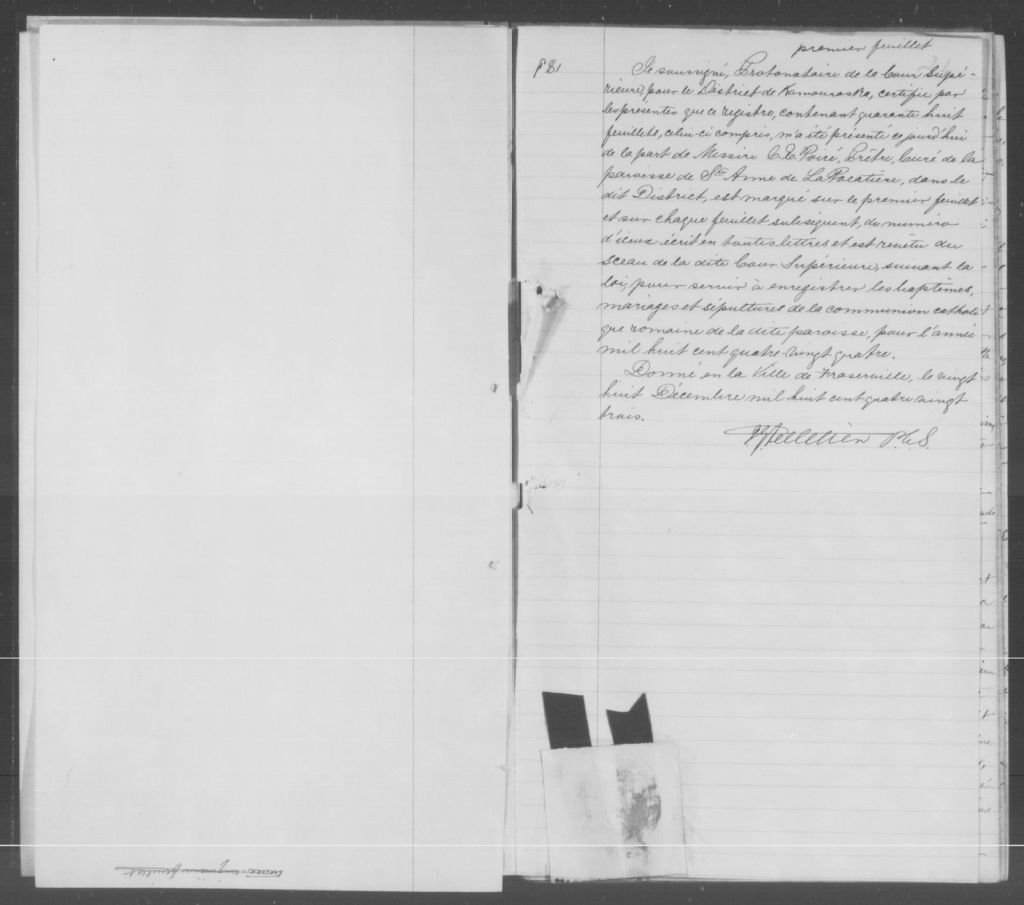 premier feuillet
Je soussigné, Protonotaire de la Cour Supé-
rieure, pour le District de Kamouraska, certifie par
les présentes que ce registre, contenant quarante huit
feuillets, celui-ci compris, m'a été présenté ce jourd'hui
de la part de Messire Poiré, Prêtre, Curé de la
paroisse de Ste Anne de La Pocatière, dans le
dit District, est marqué sur le premier feuillet
et sur chaque feuillet subséquent, du numéro
d'iceux écrit en toutes lettres et est revêtu du
sceau de la dite Cour Supérieure, suivant la
loi, pour servir à enregistrer les baptêmes,
mariages et sépultures de la communion catholi
que romaine de la dite paroisse, pour l'année
mil huit cent quatre-vingt quatre.
Donné en la Ville de Fraserville, le vingt
huit Décembre mil huit cent quatre vingt
trois.
Pelletier P.C.S.